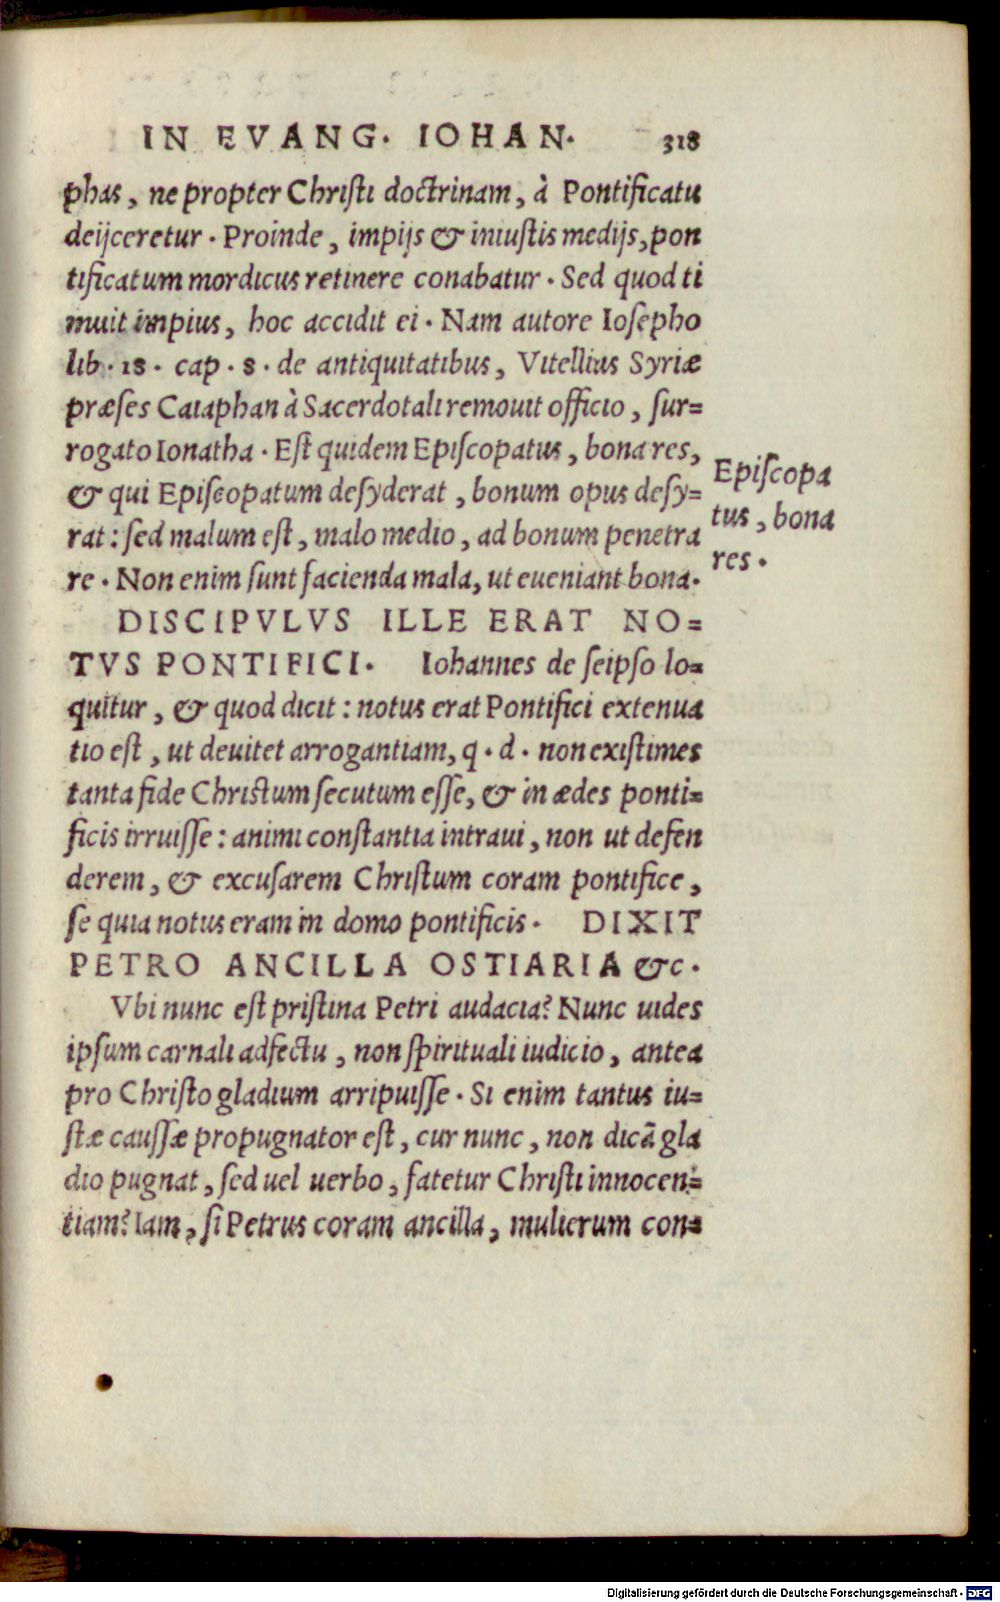 IN EVANG. IOHAN. 318
phas, ne propter Christi doctrinam, à Pontificatu
deijceretur. Proinde, impijs & iniustis medijs, pon
tificatum mordicus retinere conabatur. Sed quod ti
muit impius, hoc accidit ei. Nam autore Iosepho
lib. 18. cap. 8. de antiquitatibus, Vitellius Syriæ
præses Caiaphan à Sacerdotali remouit officio, sur=
rogato Ionatha. Est quidem Episcopatus, bona res,
& qui Episcopatum desyderat, bonum opus desy=
rat: sed malum est, malo medio, ad bonum penetra
re. Non enim sunt facienda mala, ut eueniant bona.
Episcopa
tus, bona
res.
DISCIPVLVS ILLE ERAT NO=
TVS PONTIFICI. Iohannes de seipso lo=
quitur, & quod dicit: notus erat Pontifici extenua
tio est, ut deuitet arrogantiam, q. d. non existimes
tanta fide Christum secutum esse, & in ædes ponti=
ficis irruisse: animi constantia intraui, non ut defen
derem, & excusarem Christum coram pontifice,
se quia notus eram in domo pontificis. DIXIT
PETRO ANCILLA OSTIARIA &c.
Vbi nunc est pristina Petri audacia? Nunc uides
ipsum carnali adfectu, non spirituali iudicio, antea
pro Christo gladium arripuisse. Si enim tantus iu=
stæ caussæ propugnator est, cur nunc, non dicã gla
dio pugnat, sed uel uerbo, fatetur Christi innocen=
tiam? Iam, si Petrus coram ancilla, mulierum con=
Digitalisierung gefördert durch die Deutsche Forschungsgemeinschaft - DFG